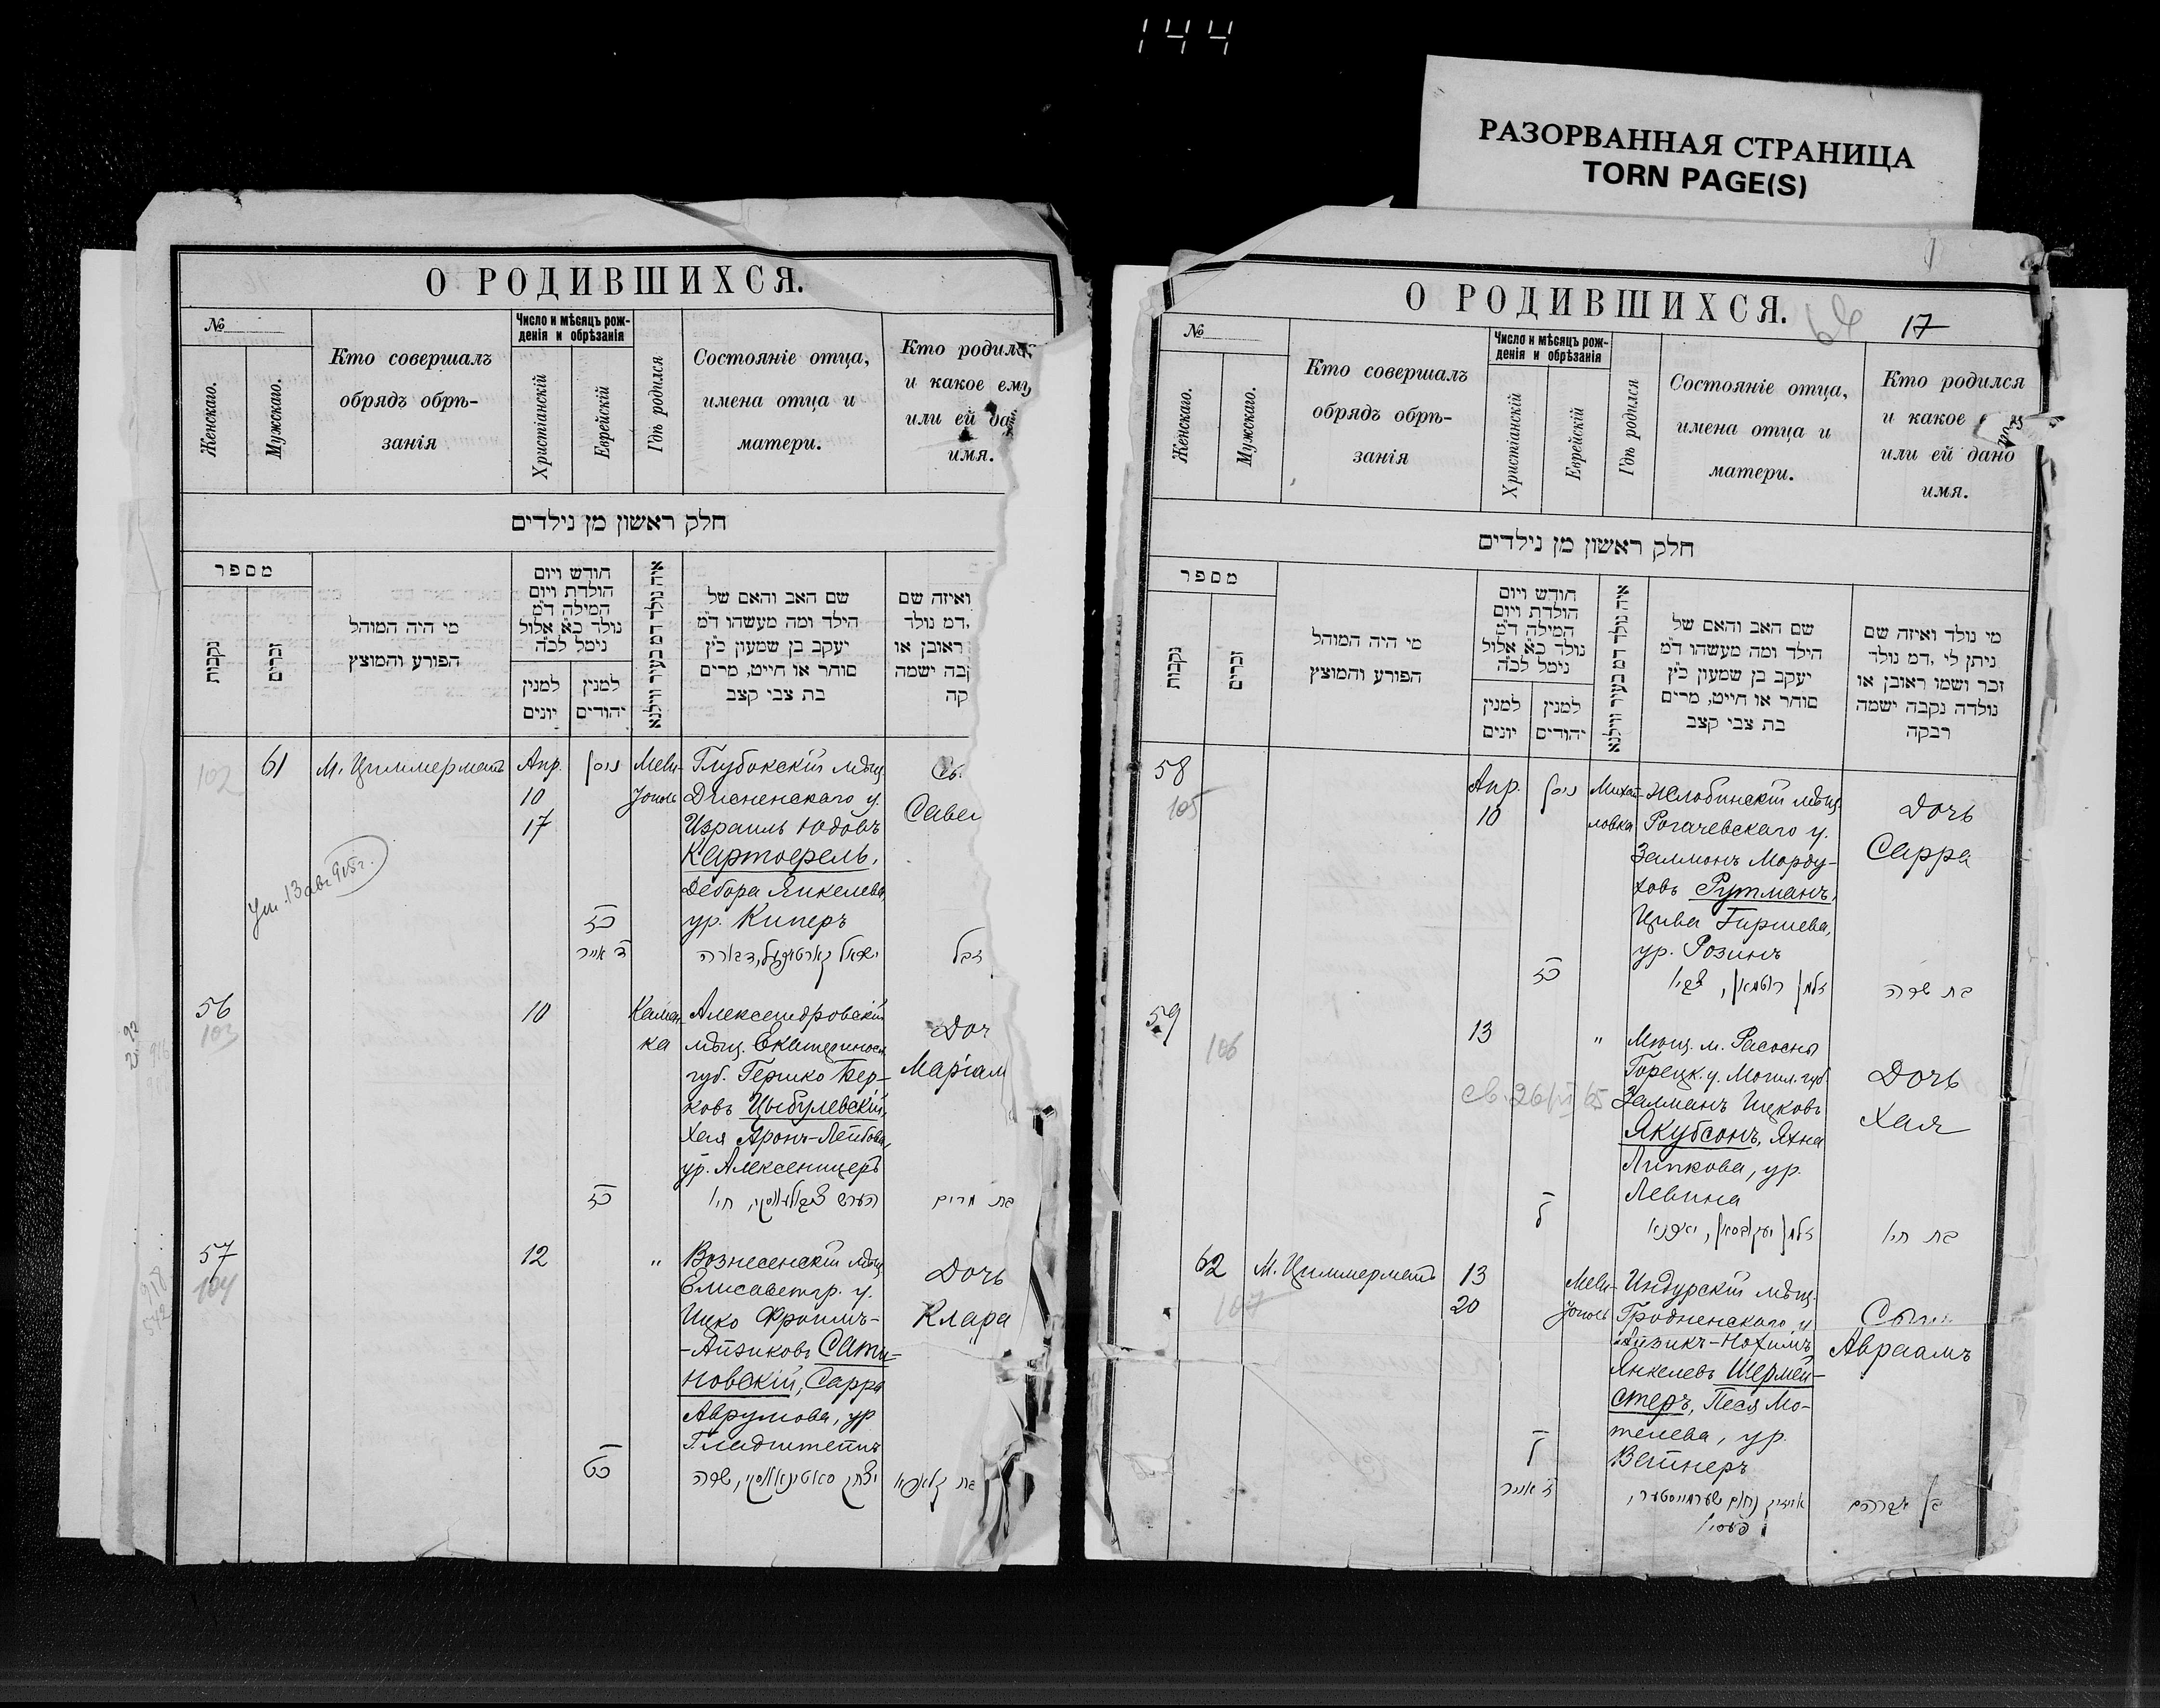 144
РАЗОРВАННАЯ СТРАНИЦА
TORN PAGE(S)
О РОДИВШИХСЯ.
№
Женскаго.
Мужскаго.
Кто совершалъ
обрядъ обрѣ-
занія
Число и мѣсяцъ рож-
денія и обрѣзанія
Христіанскій
Еврейскій
Гдѣ родился
Состояніе отца,
имена отца и
матери.
Кто родился
и какое ему
или ей да
имя.
חלק ראשון מן נילדים
מספר
נקבות
זכרים
מי היה המוהל
הפורע והמוצץ
חודש ויום
הולדת ויום
המילה ד״מ
נולד כ״א אלול
נימל לכ״ה
למנין
יונים
למנין
יהודים
איה נולד דמ בעיר ווילנא
שם האב והאם של
הילד ומה מעשהו ד״מ
יעקב בן שמעון כ״ץ
סוחר או חייט, מרים
בת צבי קצב
ואיזה שם
דמ נולד,
ראובן או
קבה ישמה
קה
102
61
М. Циммерманъ
Апр.
10
17
ניסן
כד
ד׳ אייר
Мели-
тополь
Глубокскій мѣщ.
Дисненскаго у.
Израиль Юдовъ
Картофель,
Дебора Янкелева,
ур. Киперъ
Савел
Ум. 13 авг. 905 г.
56
103
10
כד
Камен-
ка
Александровскій
мѣщ. Екатериносл.
губ. Гершко Бер-
ковъ Цыбулевскій,
Хая Аронъ-Лейбова,
ур. Алексеницеръ
Доч
Маріам
בת מרים
57
104
12
כט
"
Вознесенскій мѣщ.
Елисаветгр. у.
Ицко Фроимъ-
-Айзиковъ Сати-
новскій, Сарра
Аврумова, ур
Гладштейнъ
Дочь
Клара
О РОДИВШИХСЯ.
17
№
Женскаго.
Мужскаго.
Кто совершалъ
обрядъ обрѣ-
занія
Число и мѣсяцъ рож-
денія и обрѣзанія
Христіанскій
Еврейскій
Гдѣ родился
Состояніе отца,
имена отца и
матери.
Кто родился
и какое
или ей дано
имя.
חלק ראשון מן נילדים
מספר
נקבות
זכרים
מי היה המוהל
הפורע והמוצץ
חודש ויום
הולדת ויום
המילה ד״מ
נולד כ״א אלול
נימל לכ״ה
למנין
יונים
למנין
יהודים
איה נולד דמ בעיר ווילנא
שם האב והאם של
הילד ומה מעשהו ד״מ
יעקב בן שמעון כ״ץ
סוחר או חייט, מרים
בת צבי קצב
מי נולד ואיזה שם
ניתן לי ,דמ נולד
זכר ושמו ראובן או
נולדה נקבה ישמה
רבקה
58
105
Апр.
10
ניסן
כד
Михай-
ловка
Жлобинскій мѣщ.
Рогачевскаго у.
Залмонъ Морду-
ховъ Рутманъ,
Цива Гиршева,
ур. Розинъ
Дочь
Сарра
בת שרה
59
106
13
ל
"
Мѣщ. м. Расосны
Горецк. у. Могил. губ.
Залманъ Ицковъ
Якубсонъ, Яхна
Липкова, ур.
Левина
Дочь
Хая
בת חיה
62
107
М. Циммерманъ
13
20
ל
ז׳ אייר
Мели-
тополь
Индурскій мѣщ.
Гродненскаго у.
Айзикъ-Нохимъ
Янкелевъ Шермей-
стеръ, Песя Мо-
телева, ур.
Вейнеръ
Сынъ
Авраамъ
בן אברהם